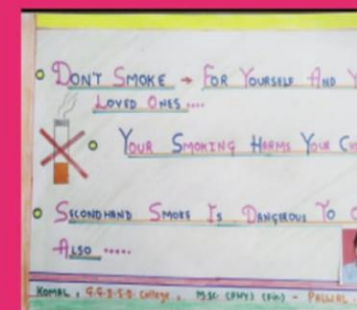 DON'T SMOKE → FOR YOURSELF AND
LOVED ONES ....
YOUR SMOKING HARMS YOUR
SECONDHAND SMOKE IS DANGEROUS TO
ALSO .....
KOMAL, G.G.D.S.D. College, M.Sc. (PHY) (Fin) - PALWAL